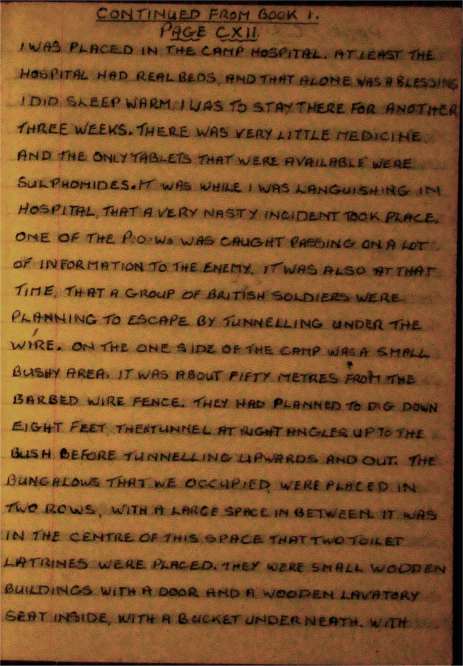 CONTINUED FROM BOOK 1.
PAGE CXII
I WAS PLACED IN THE CAMP HOSPITAL. AT LEAST THE
HOSPITAL HAD REAL BEDS, AND THAT ALONE WAS A BLESSING
I DID SLEEP WARM. I WAS TO STAY THERE FOR ANOTHER
THREE WEEKS. THERE WAS VERY LITTLE MEDICINE
AND THE ONLY TABLETS THAT WERE AVAILABLE WERE
SULPHOMIDES. IT WAS WHILE I WAS LANGUISHING IN
HOSPITAL, THAT A VERY NASTY INCIDENT TOOK PLACE.
ONE OF THE P.O.Ws WAS CAUGHT PASSING ON A LOT
OF INFORMATION TO THE ENEMY. IT WAS ALSO AT THAT
TIME, THAT A GROUP OF BRITISH SOLDIERS WERE
PLANNING TO ESCAPE BY TUNNELLING UNDER THE
WIRE. ON THE ONE SIDE OF THE CAMP WAS A SMALL
BUSHY AREA. IT WAS ABOUT FIFTY METRES FROM THE
BARBED WIRE FENCE. THEY HAD PLANNED TO DIG DOWN
EIGHT FEET, THEN TUNNEL AT RIGHT ANGLES UP TO THE
BUSH BEFORE TUNNELLING UPWARDS AND OUT. THE
BUNGALOWS THAT WE OCCUPIED, WERE PLACED IN
TWO ROWS, WITH A LARGE SPACE IN BETWEEN. IT WAS
IN THE CENTRE OF THIS SPACE THAT TWO TOILET
LATRINES WERE PLACED. THEY WERE SMALL WOODEN
BUILDINGS WITH A DOOR AND A WOODEN LAVATORY
SEAT INSIDE, WITH A BUCKET UNDERNEATH. WITH